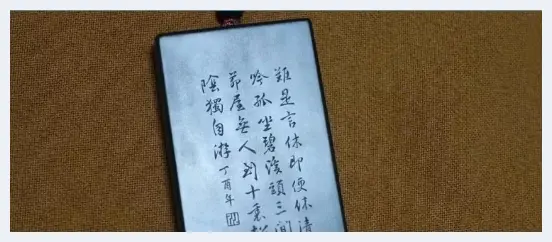 難是言休即便休清
吟孤坐碧溪頭三間
茆屋無人到十裏
陰獨自游丁酉年